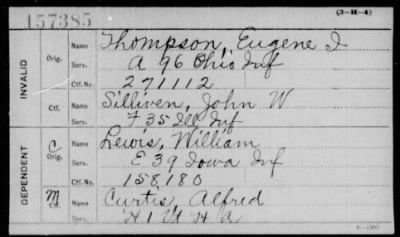 157385
(3-H-4)
INVALID
Orig.
Name Thompson, Eugene I
Serv. A 96 Ohio Inf
Ctf. No. 271112
Ctf.
Name Silliven, John W
Serv. F 35 Ill Inf
DEPENDENT
C
Orig.
Name Lewis, William
Serv. E 39 Iowa Inf
Ctf. No. 158,180
M
Ctf.
Name Curtis, Alfred
Serv. H 1 U H A